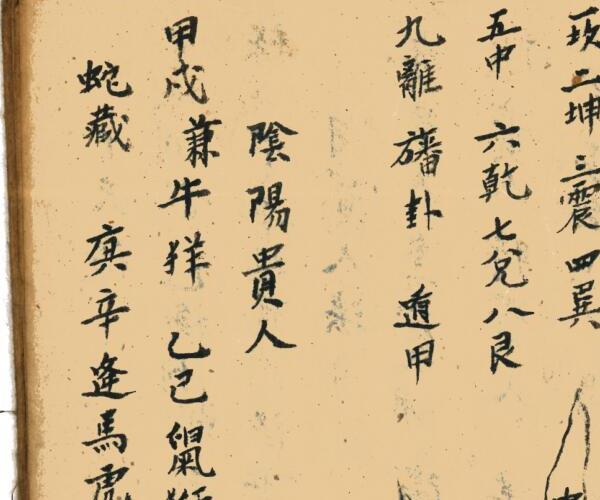 一坎二坤三震四巽
五中 六乾七兌八艮
九離 旛卦 遁甲
陰陽貴人
甲戊兼牛羊 乙己鼠
蛇藏 庚辛逢馬虎